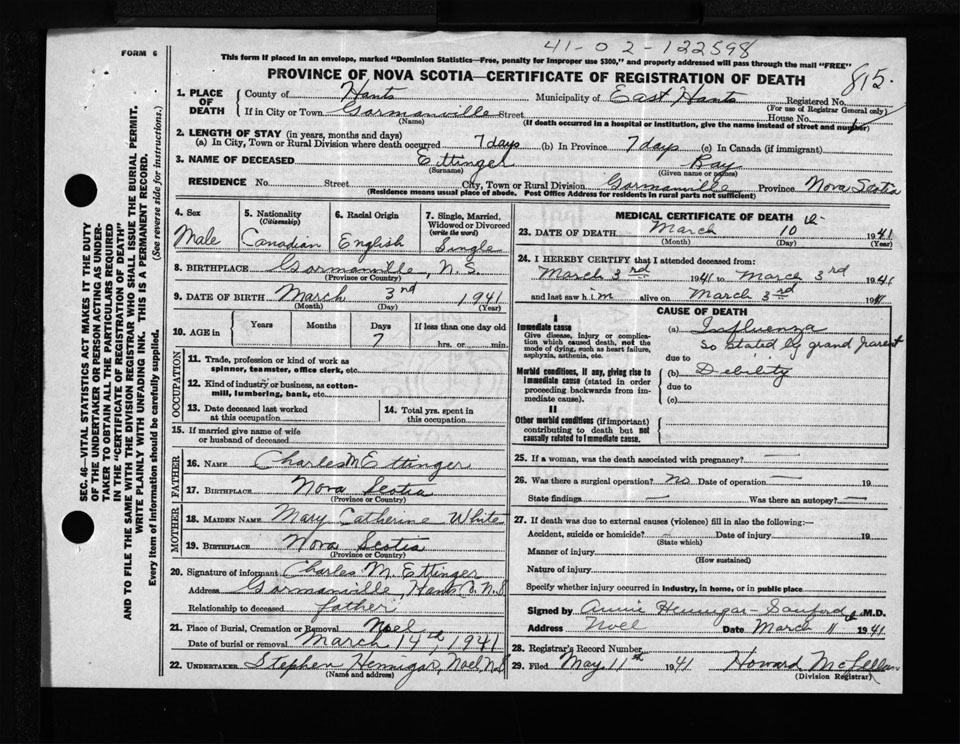 41-02-122598
FORM 6
This form if placed in an envelope, marked "Dominion Statistics—Free, penalty for improper use $300," and properly addressed will pass through the mail "FREE"
PROVINCE OF NOVA SCOTIA—CERTIFICATE OF REGISTRATION OF DEATH
815.
1. PLACE OF DEATH
County of Hants Municipality of East Hants Registered No.
(For use of Registrar General only)
If in City or Town Gormanville Street House No.
(Name) (If death occurred in a hospital or institution, give the name instead of street and number)
2. LENGTH OF STAY (in years, months and days)
(a) In City, Town or Rural Division where death occurred 7 days (b) In Province 7 days (c) In Canada (if immigrant)
3. NAME OF DECEASED Ettinger Ray
(Surname) (Given name or names)
RESIDENCE No. Street City, Town or Rural Division Gormanville Province Nova Scotia
(Residence means usual place of abode. Post Office Address for residents in rural parts not sufficient)
4. Sex
Male
5. Nationality
(Citizenship)
Canadian
6. Racial Origin
English
7. Single, Married, Widowed or Divorced
(write the word)
Single
8. BIRTHPLACE Gormanville, N.S.
(Province or Country)
9. DATE OF BIRTH March 3rd 1941
(Month) (Day) (Year)
10. AGE in Years Months Days If less than one day old
7 hrs. or min.
OCCUPATION
11. Trade, profession or kind of work as
spinner, teamster, office clerk, etc.
12. Kind of industry or business, as cotton-
mill, lumbering, bank, etc.
13. Date deceased last worked
at this occupation
14. Total yrs. spent in
this occupation
15. If married give name of wife
or husband of deceased
FATHER
16. NAME Charles M Ettinger
17. BIRTHPLACE Nova Scotia
(Province or Country)
MOTHER
18. MAIDEN NAME Mary Catherine White
19. BIRTHPLACE Nova Scotia
(Province or Country)
20. Signature of informant Charles M. Ettinger
Address Gormanville, Hants C. N.S
Relationship to deceased father
21. Place of Burial, Cremation or Removal Noel
Date of burial or removal March 14th, 1941
22. UNDERTAKER Stephen Hennigar, Noel, N.S
(Name and address)
MEDICAL CERTIFICATE OF DEATH
23. DATE OF DEATH March 10 1941
(Month) (Day) (Year)
24. I HEREBY CERTIFY that I attended deceased from:
March 3rd 1941 to March 3rd 1941
and last saw him alive on March 3rd 1941
CAUSE OF DEATH
I
Immediate cause
Give disease, injury or complication which caused death, not the mode of dying, such as heart failure, asphyxia, asthenia, etc.
(a) Influenza
so stated by grand parent
due to
Morbid conditions, if any, giving rise to immediate cause (stated in order proceeding backwards from immediate cause).
(b) Debility
due to
(c)
II
Other morbid conditions (if important) contributing to death but not causally related to immediate cause.
25. If a woman, was the death associated with pregnancy? —
26. Was there a surgical operation? No Date of operation — 19
State findings — Was there an autopsy? —
27. If death was due to external causes (violence) fill in also the following:—
Accident, suicide or homicide? — Date of injury 19
(State which)
Manner of injury
(How sustained)
Nature of injury
Specify whether injury occurred in industry, in home, or in public place
Signed by Annie Hennigar-Sanford M.D.
Address Noel Date March 11th 1941
28. Registrar's Record Number
29. Filed May 11th 1941 Howard McLellan
(Division Registrar)
SEC. 46—VITAL STATISTICS ACT MAKES IT THE DUTY
OF THE UNDERTAKER OR PERSON ACTING AS UNDER-
TAKER TO OBTAIN ALL THE PARTICULARS REQUIRED
IN THE "CERTIFICATE OF REGISTRATION OF DEATH"
AND TO FILE THE SAME WITH THE DIVISION REGISTRAR WHO SHALL ISSUE THE BURIAL PERMIT.
WRITE PLAINLY WITH UNFADING INK. THIS IS A PERMANENT RECORD.
Every item of information should be carefully supplied. (See reverse side for instructions.)